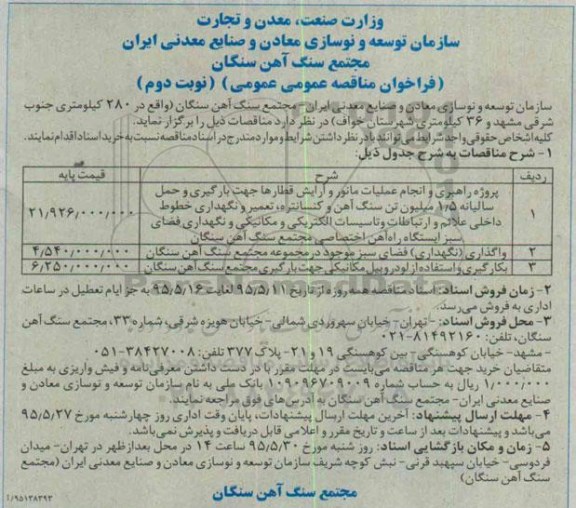 وزارت صنعت، معدن و تجارت
سازمان توسعه و نوسازی معادن و صنایع معدنی ایران
مجتمع سنگ آهن سنگان
(فراخوان مناقصه عمومی عمومی) (نوبت دوم)
سازمان توسعه و نوسازی معادن و صنایع معدنی ایران - مجتمع سنگ آهن سنگان (واقع در ۲۸۰ کیلومتری جنوب
شرقی مشهد و ۳۶ کیلومتری شهرستان خواف) در نظر دارد مناقصات ذیل را برگزار نماید.
کلیه اشخاص حقوقی واجد شرایط می‌توانند با در نظر داشتن شرایط و موارد مندرج در اسناد مناقصه نسبت به خرید اسناد اقدام نمایند.
۱- شرح مناقصات به شرح جدول ذیل:
ردیف شرح قیمت پایه
۱ پروژه راهبری و انجام عملیات مانور و آرایش قطارها جهت بارگیری و حمل
سالیانه ۱/۵ میلیون تن سنگ آهن و کنسانتره، تعمیر و نگهداری خطوط
داخلی علائم و ارتباطات و تاسیسات الکتریکی و مکانیکی و نگهداری فضای
سبز ایستگاه راه‌آهن اختصاصی مجتمع سنگ آهن سنگان ۲۱/۹۲۶/۰۰۰/۰۰۰
۲ واگذاری (نگهداری) فضای سبز موجود در مجموعه مجتمع سنگ آهن سنگان ۴/۵۴۰/۰۰۰/۰۰۰
۳ بکارگیری و استفاده از لودر و بیل مکانیکی جهت بارگیری مجتمع سنگ آهن سنگان ۶/۲۵۰/۰۰۰/۰۰۰
۲- زمان فروش اسناد: اسناد مناقصه همه روزه از تاریخ ۹۵/۵/۱۱ لغایت ۹۵/۵/۱۶ به جز ایام تعطیل در ساعات
اداری به فروش می‌رسد.
۳- محل فروش اسناد: - تهران- خیابان سهروردی شمالی- خیابان هویزه شرقی، شماره ۳۳، مجتمع سنگ آهن
سنگان، تلفن: ۸۱۴۹۲۱۶۰-۰۲۱
- مشهد- خیابان کوهسنگی- بین کوهسنگی ۱۹ و ۲۱- پلاک ۳۷۷ تلفن: ۳۸۴۲۷۰۰۸-۰۵۱
متقاضیان خرید جهت هر مناقصه می‌بایست در مهلت مقرر با در دست داشتن معرفی‌نامه و فیش واریزی به مبلغ
۱/۰۰۰/۰۰۰ ریال به حساب شماره ۰۱۰۹۰۹۶۷۰۹۰۰۹ بانک ملی به نام سازمان توسعه و نوسازی معادن و
صنایع معدنی ایران- مجتمع سنگ آهن سنگان به آدرس‌های فوق مراجعه نمایند.
۴- مهلت ارسال پیشنهاد: آخرین مهلت ارسال پیشنهادات، پایان وقت اداری روز چهارشنبه مورخ ۹۵/۵/۲۷
می‌باشد و پیشنهادات بعد از ساعت و تاریخ مقرر و اعلامی قابل دریافت و پذیرش نمی‌باشد.
۵- زمان و مکان بازگشایی اسناد: روز شنبه مورخ ۹۵/۵/۳۰ ساعت ۱۴ در محل بعدازظهر در تهران- میدان
فردوسی- خیابان سپهبد قرنی- نبش کوچه شریف سازمان توسعه و نوسازی معادن و صنایع معدنی ایران (مجتمع
سنگ آهن سنگان)
مجتمع سنگ آهن سنگان